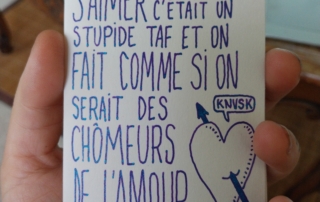 S'AIMER C'ÉTAIT UN
STUPIDE TAF ET ON
FAIT COMME SI ON
SERAIT DES
CHÔMEURS
DE L'AMOUR
KNVSK